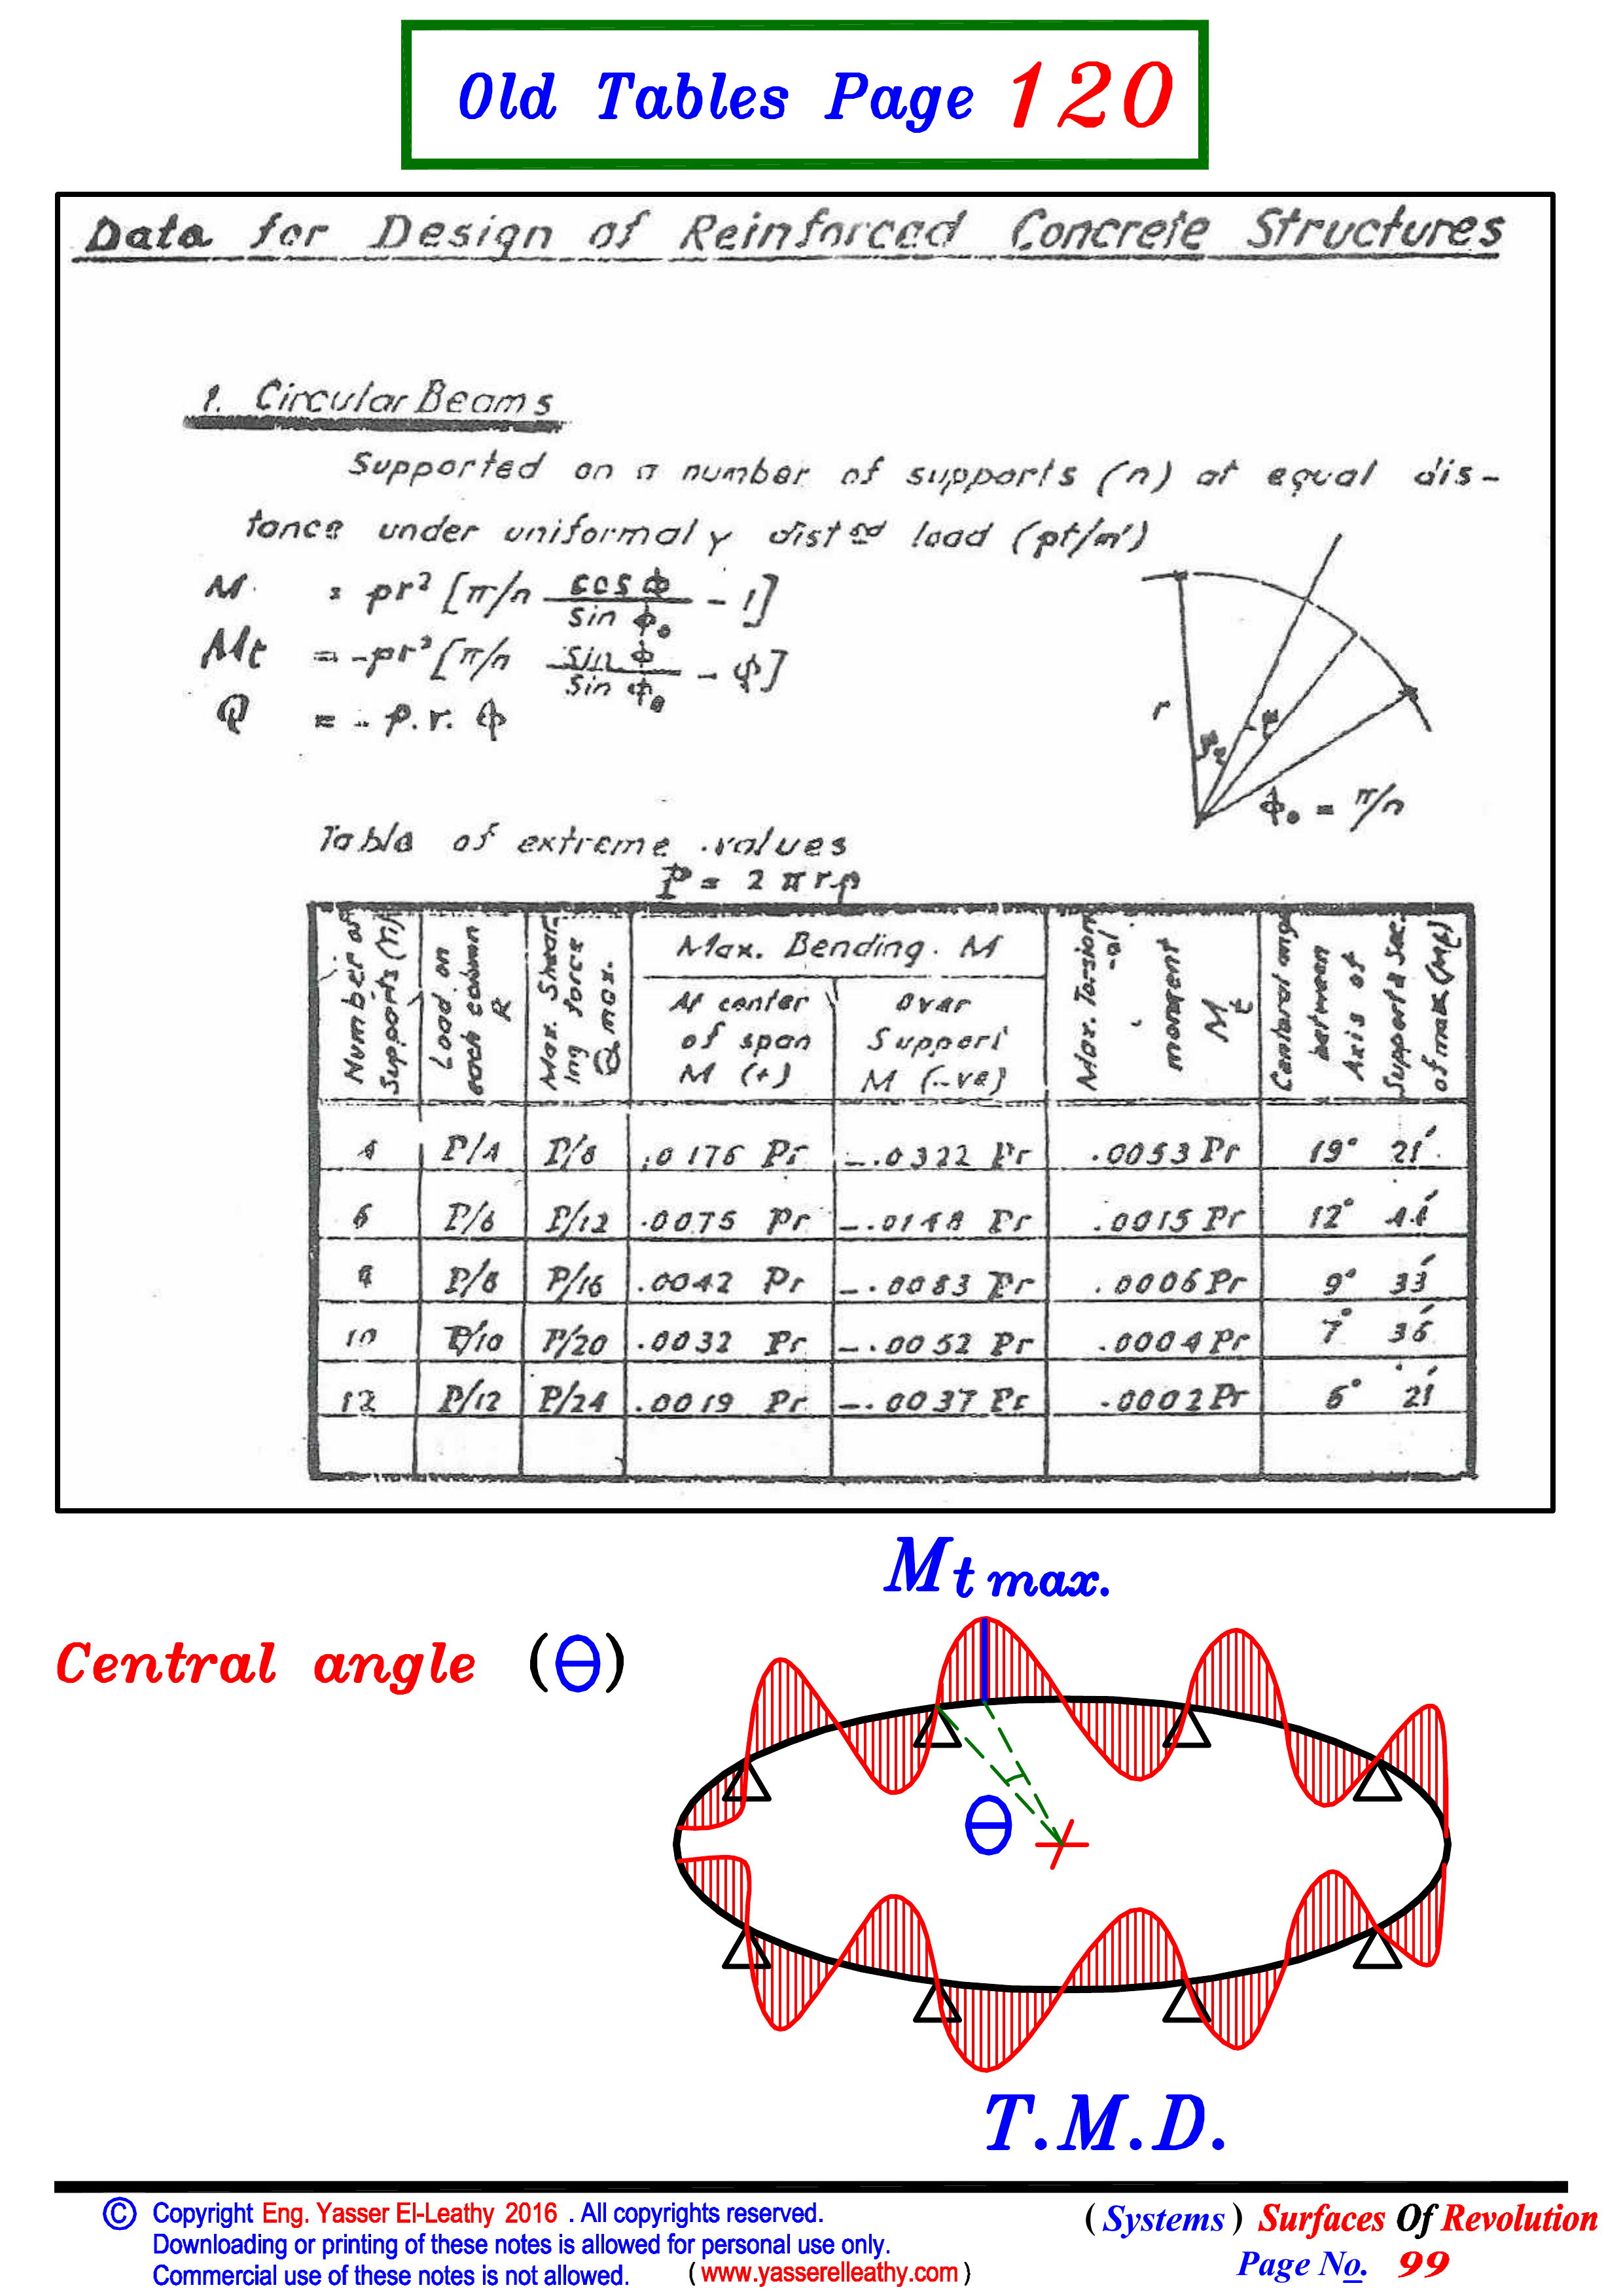 Old Tables Page 120
Data for Design of Reinforced Concrete Structures
1. Circular Beams
Supported on a number of supports (n) at equal dis-
tance under uniformaly dist ed load (pt/m')
M = pr² [π/n cos φ / sin φ₀ - 1]
Mt = -pr² [π/n sin φ / sin φ₀ - φ]
Q = - p.r. φ
r
φ
φ₀ = π/n
Table of extreme values
P = 2 π r p
Number of Supports (n) | Load on each column R | Max. Shearing force Q max. | Max. Bending. M | Max. Torsional moment Mt | Centeral ang between Axis of Supports & Sec. of max (Mt)
At center of span M (+) | Over Support M (-ve)
4 | P/4 | P/8 | .0176 Pr | -.0322 Pr | .0053 Pr | 19° 21'
6 | P/6 | P/12 | .0075 Pr | -.0148 Pr | .0015 Pr | 12° 44'
8 | P/8 | P/16 | .0042 Pr | -.0083 Pr | .0006 Pr | 9° 33'
10 | P/10 | P/20 | .0032 Pr | -.0052 Pr | .0004 Pr | 7° 36'
12 | P/12 | P/24 | .0019 Pr | -.0037 Pr | .0002 Pr | 6° 21'
Mt max.
Central angle (θ)
θ
T.M.D.
© Copyright Eng. Yasser El-Leathy 2016 . All copyrights reserved.
Downloading or printing of these notes is allowed for personal use only.
Commercial use of these notes is not allowed. ( www.yasserelleathy.com )
( Systems ) Surfaces Of Revolution
Page No. 99